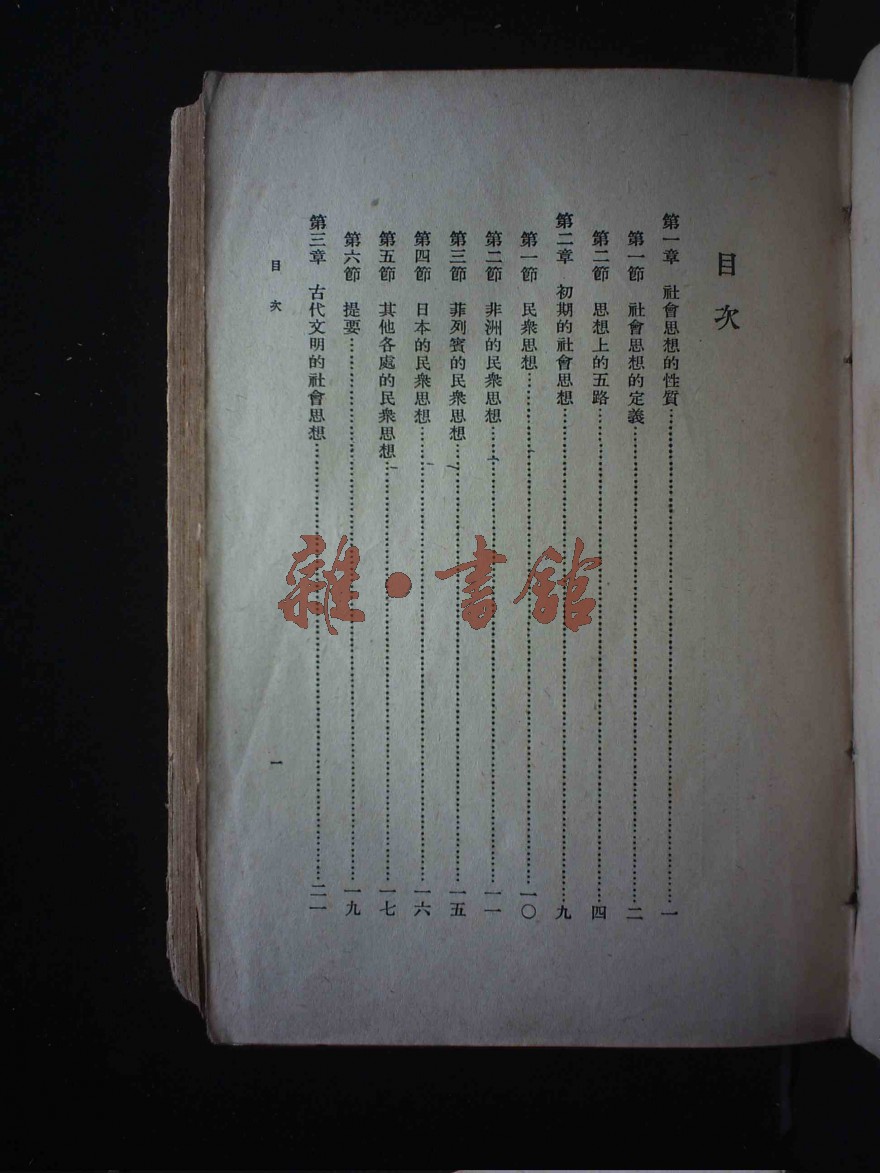 目次
第一章 社會思想的性質……………一
第一節 社會思想的定義……………二
第二節 思想上的五路……………四
第二章 初期的社會思想……………九
第一節 民衆思想……………一〇
第二節 非洲的民衆思想……………一一
第三節 菲列賓的民衆思想……………一五
第四節 日本的民衆思想……………一六
第五節 其他各處的民衆思想……………一七
第六節 提要……………一九
第三章 古代文明的社會思想……………二一
目次 一
雜・書館